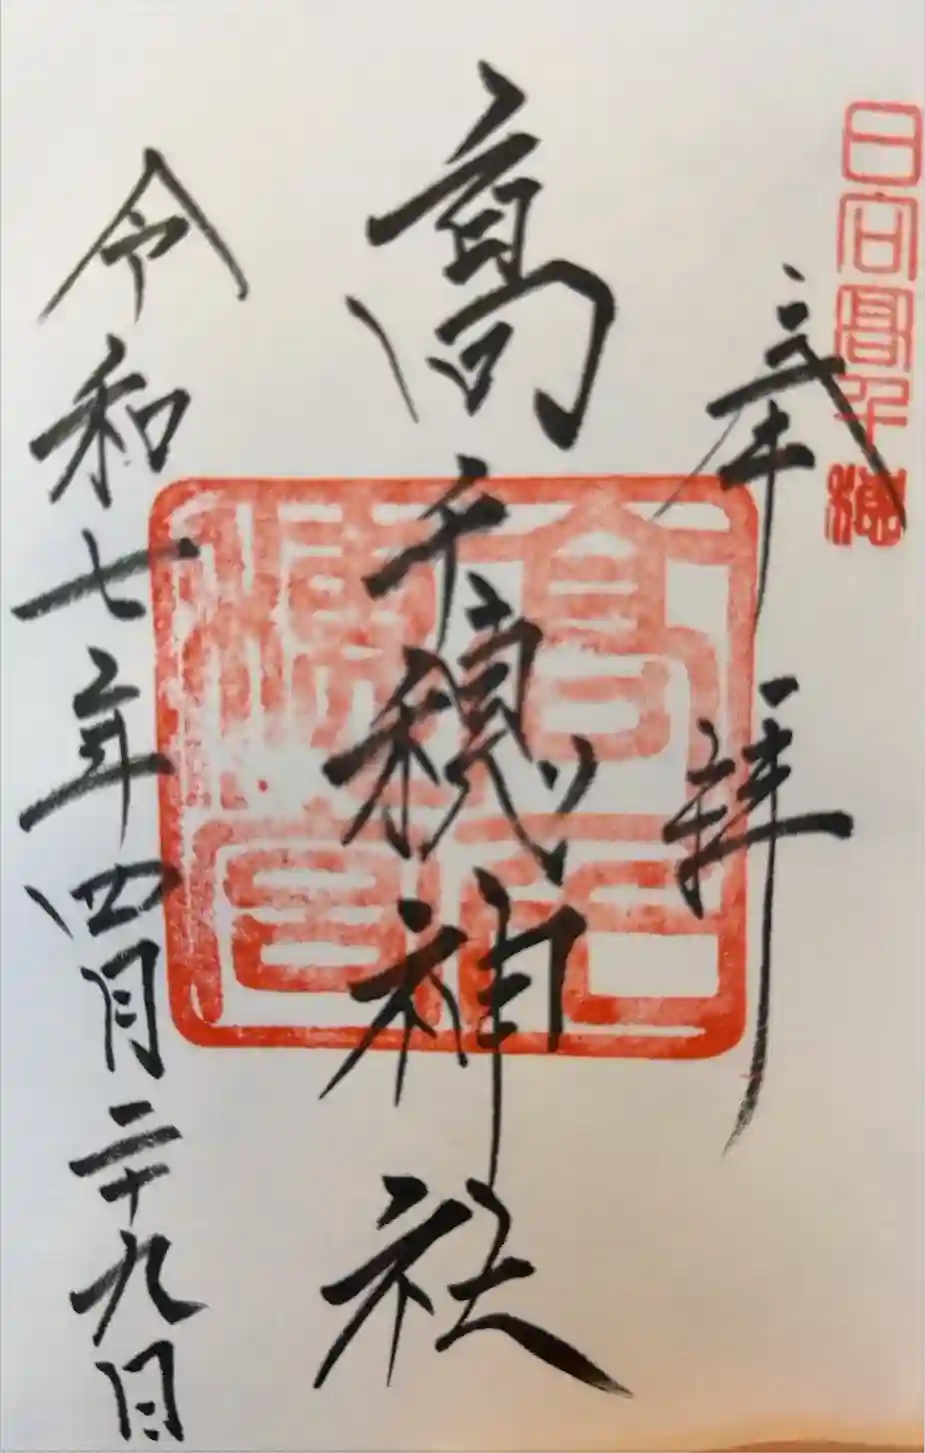 日向高千穂
奉拝
高千穂神社
令和七年四月二十九日